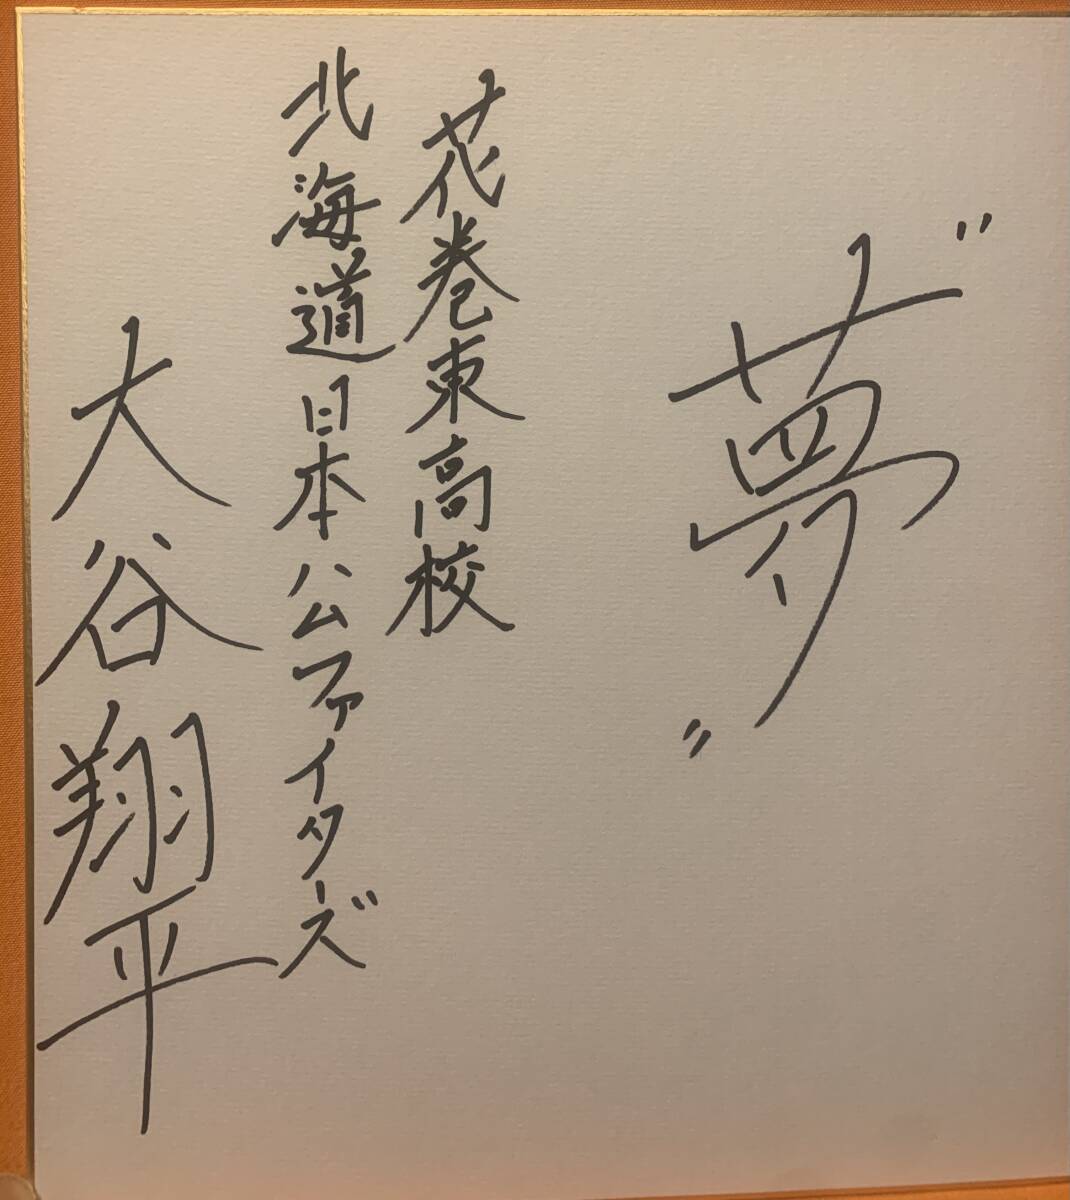 "夢"
花巻東高校
北海道日本公ファイターズ
大谷翔平